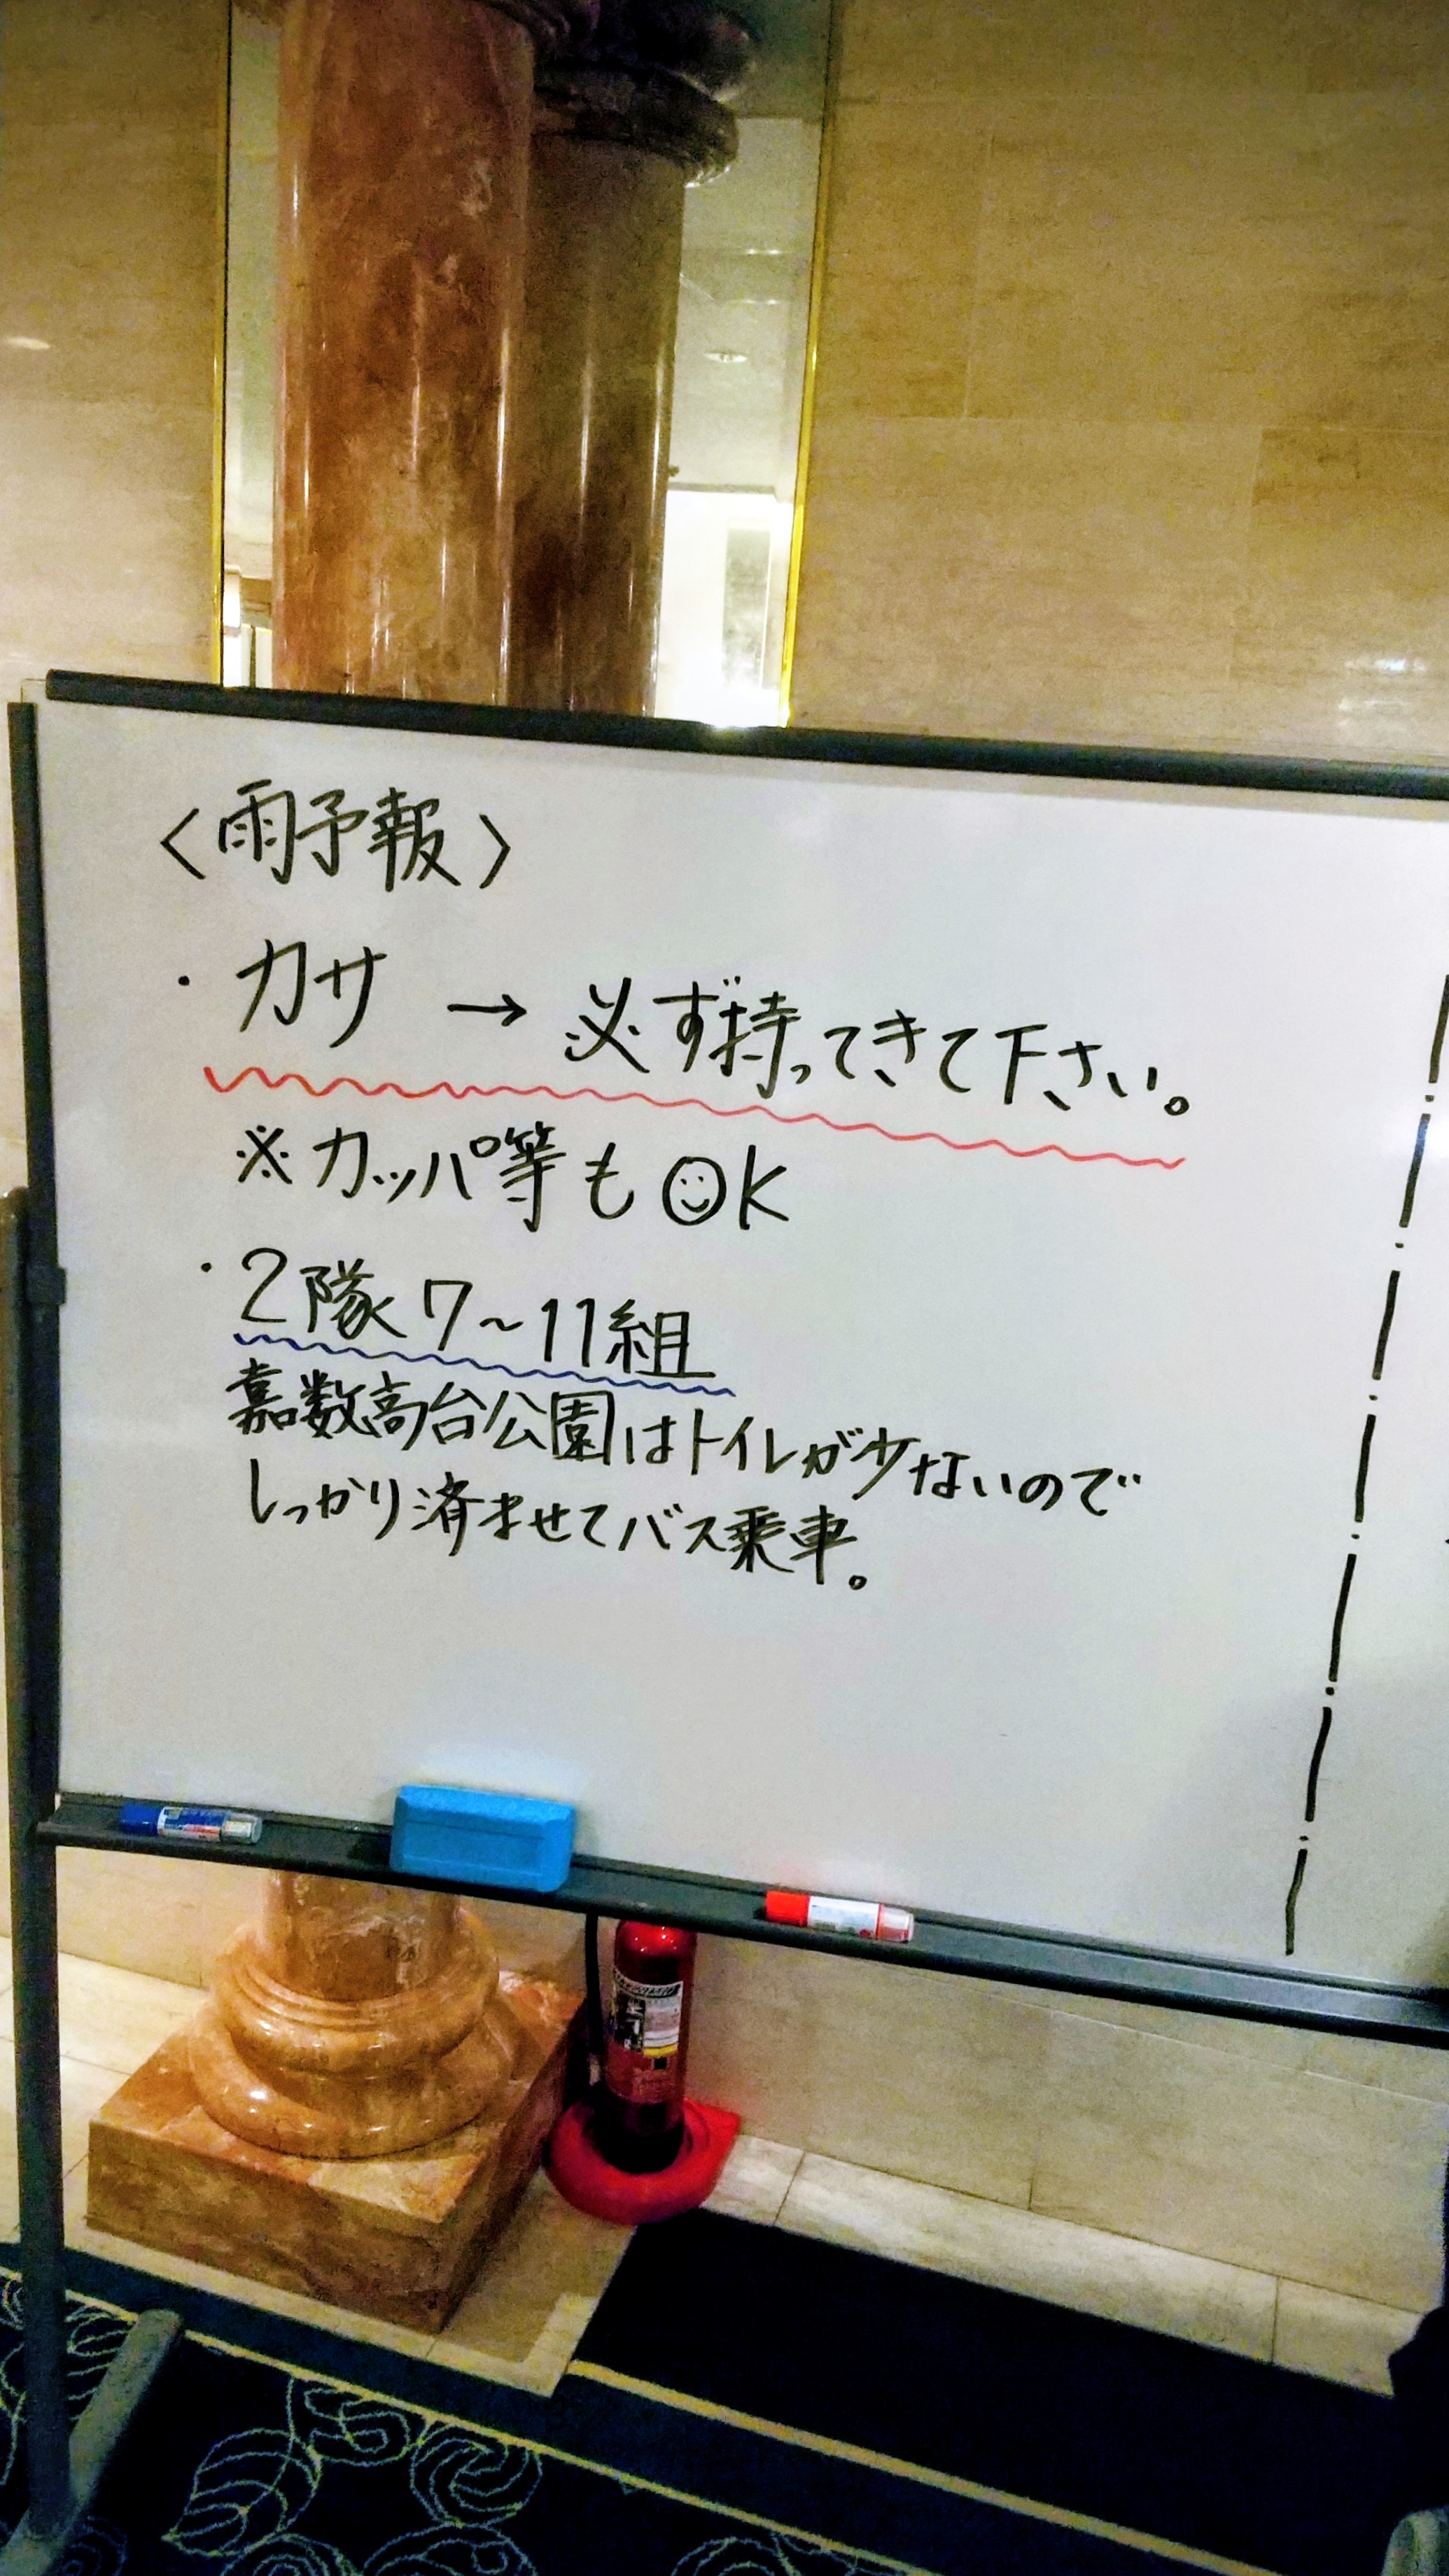 〈雨予報〉
・カサ → 必ず持ってきて下さい。
※カッパ等もOK
・2隊7~11組
嘉数高台公園はトイレが少ないので
しっかり済ませてバス乗車。